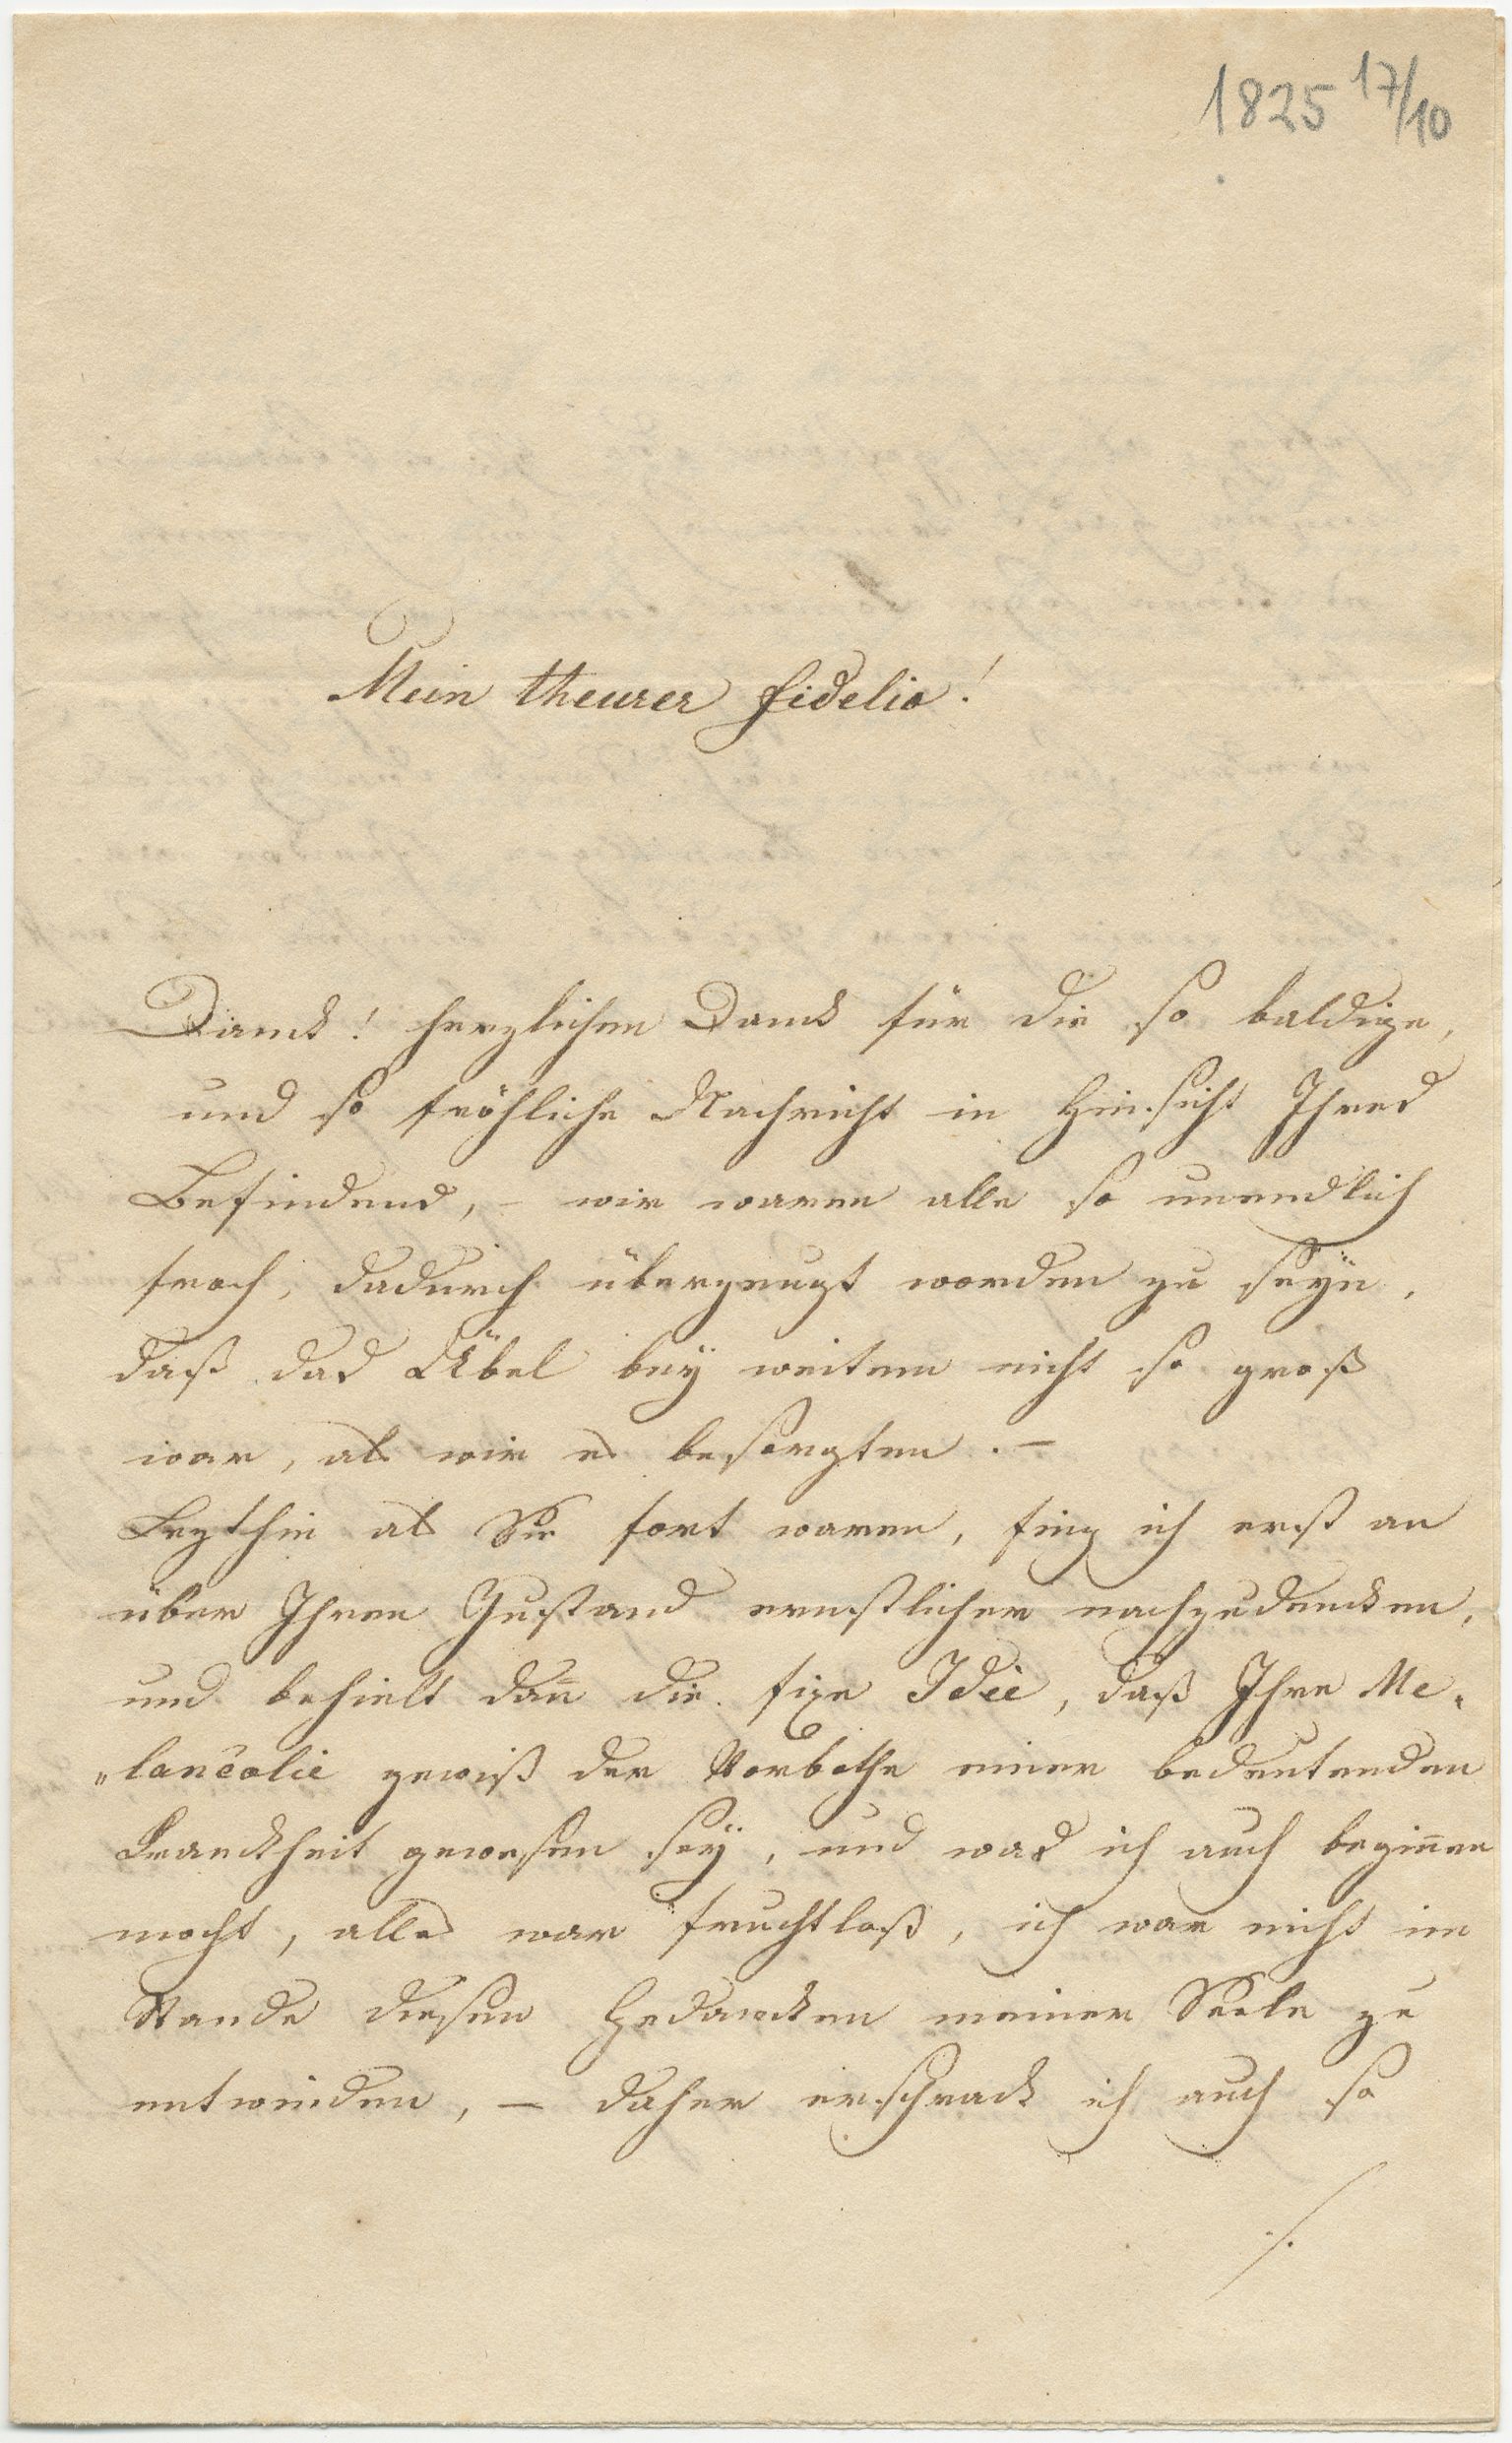 1825 17/10
Mein theurer Fidelio!
Danck! herzlichen Danck für die so baldige,
und so fröhliche Nachricht in Hinsicht Ihres
Befindens, – wir waren alle so unendlich
froh, dadurch überzeugt worden zu seÿn,
daß das Übel beÿ weitem nicht so groß
war, als wir es besorgten. –
Lezthin als Sie fort waren, fing ich erst an
über Ihren Zustand ernstlicher nachzudencken,
und behielt dañ die fixe Idee, daß Ihre Me„
„lancolie gewiß der Vorbothe einer bedeutenden
Kranckheit gewesen seÿ, und was ich auch begiñen
mocht, alles war fruchtloß, ich war nicht im
Stande diesen Gedancken meiner Seele zu
entwinden, – daher erschrack ich auch so
./.